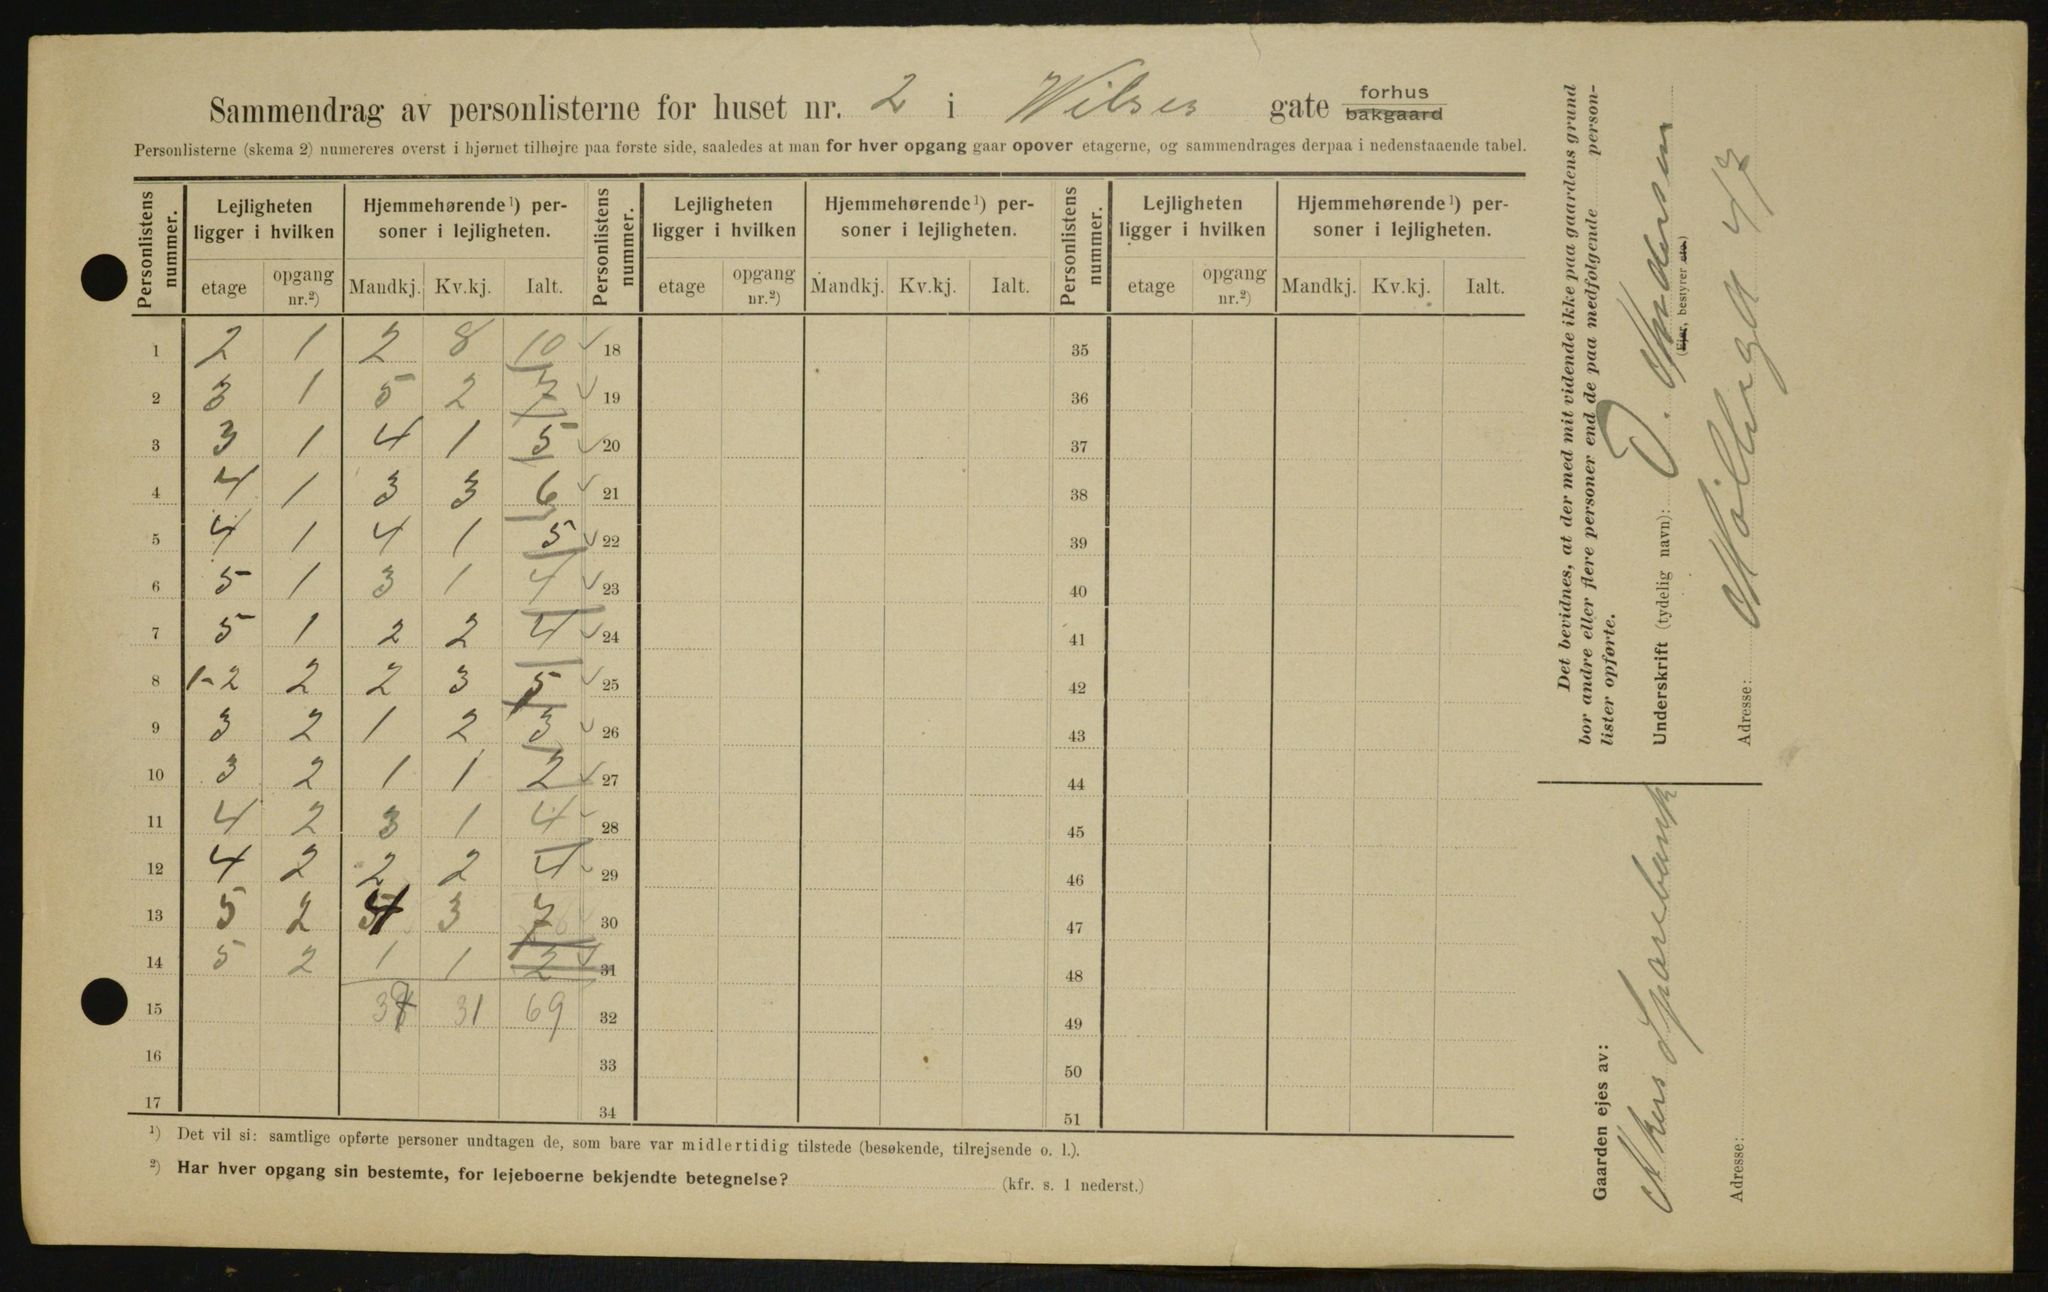 Sammendrag av personlisterne for huset nr. 2 i Wilses gate forhus bakgaard
Personlisterne (skema 2) numereres øverst i hjørnet tilhøjre paa første side, saaledes at man for hver opgang gaar opover etagerne, og sammendrages derpaa i nedenstaaende tabel.
Personlistens nummer. Lejligheten ligger i hvilken Hjemmehørende ¹) personer i lejligheten. Personlistens nummer. Lejligheten ligger i hvilken Hjemmehørende ¹) personer i lejligheten. Personlistens nummer. Lejligheten ligger i hvilken Hjemmehørende ¹) personer i lejligheten.
etage opgang nr.²) Mandkj. Kv.kj. Ialt. etage opgang nr.²) Mandkj. Kv.kj. Ialt. etage opgang nr.²) Mandkj. Kv.kj. Ialt.
1 2 1 2 8 10 ✓ 18 35
2 3 1 5 2 7 ✓ 19 36
3 3 1 4 1 5 ✓ 20 37
4 4 1 3 3 6 ✓ 21 38
5 4 1 4 1 5 ✓ 22 39
6 5 1 3 1 4 ✓ 23 40
7 5 1 2 2 4 ✓ 24 41
8 1-2 2 2 3 5 ✓ 25 42
9 3 2 1 2 3 ✓ 26 43
10 3 2 1 1 2 ✓ 27 44
11 4 2 3 1 4 ✓ 28 45
12 4 2 2 2 4 ✓ 29 46
13 5 2 4 3 7 ✓ 30 47
14 5 2 1 1 2 ✓ 31 48
15 31 69 32 49
16 33 50
17 34 51
¹) Det vil si: samtlige opførte personer undtagen de, som bare var midlertidig tilstede (besøkende, tilrejsende o. l.).
²) Har hver opgang sin bestemte, for lejeboerne bekjendte betegnelse? (kfr. s. 1 nederst.)
Det bevidnes, at der med mit vidende ikke paa gaardens grund
bor andre eller flere personer end de paa medfølgende person-
lister opførte.
Underskrift (tydelig navn): O. Andersen
(Ejer, bestyrer etc.)
Adresse: Møllergt 47
Gaarden ejes av:
Akers Sparebank
Adresse: